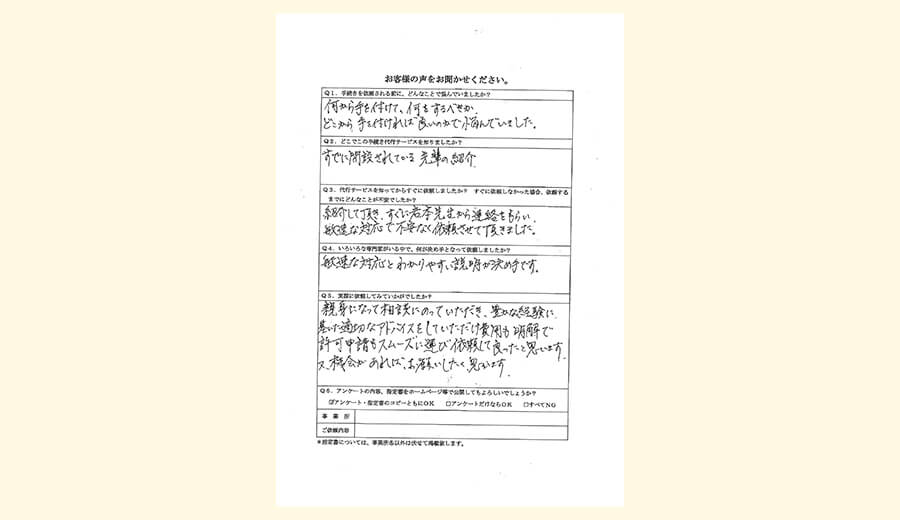 お客様の声をお聞かせください。
Q1．手続きを依頼される前に、どんなことで悩んでいましたか？
何から手を付けて、何をするべきか
どこから手を付ければ良いのかで悩んでいました。
Q2．どこでこの手続き代行サービスを知りましたか？
すでに開設されている先輩の紹介
Q3．代行サービスを知ってからすぐに依頼しましたか？ すぐに依頼しなかった場合、依頼する
までにどんなことが不安でしたか？
紹介して頂き、すぐに岩本先生から連絡をもらい、
敏速な対応で不安なく依頼させて頂きました。
Q4．いろいろな専門家がいる中で、何が決め手となって依頼しましたか？
敏速な対応とわかりやすい説明が決め手です。
Q5．実際に依頼してみていかがでしたか？
親身になって相談にのっていただき、豊かな経験に
基いた適切なアドバイスをしていただけ費用も明解で
許可申請もスムーズに運び依頼して良かったと思います。
又、機会があれば、お願いしたく思います。
Q6．アンケートの内容、指定書をホームページ等で公開してもよろしいでしょうか？
☑アンケート・指定書のコピーともにOK □アンケートだけならOK □すべてNG
事業所
ご依頼内容
＊指定書については、事業所名以外は伏せて掲載致します。